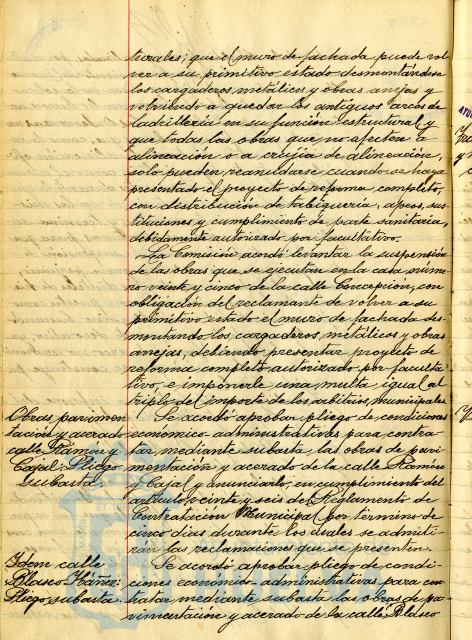 turales; que el muro de fachada puede vol-
ver a su primitivo estado desmontándose
los cargaderos metálicos y obras anejas y
volviendo a quedar los antiguos arcos de
ladrillería en su función estructural y
que todas las obras que no afecten a
alineación o a crujía de alineación,
solo pueden reanudarse cuando se haya
presentado el proyecto de reforma completo,
con distribución de tabiquería, apeos, sus-
tituciones y cumplimiento de parte sanitaria,
debidamente autorizado por facultativo.
La Comisión acordó levantar la suspensión
de las obras que se ejecutan en la casa núme-
ro veinte y cinco de la calle Concepción, con
obligación del reclamante de volver a su
primitivo estado el muro de fachada des-
montando los cargaderos metálicos y obras
anejas, debiendo presentar proyecto de
reforma completo autorizado por faculta-
tivo, e imponerle una multa igual al
triple del importe de los arbitrios municipales
Obras pavimen
tación y acerado
calle Ramón y
Cajal. Pliego
Subasta
Se acordó aprobar pliego de condiciones
económico-administrativas para contra-
tar mediante subasta las obras de pavi-
mentación y acerado de la calle Ramón
y Cajal y anunciarlo, en cumplimiento del
artículo veinte y seis del Reglamento de
Contratación Municipal por término de
cinco días durante los cuales se admiti-
rán las reclamaciones que se presenten.
Idem calle
Blasco Ibáñez:
Pliego subasta
Se acordó aprobar pliego de condi-
ciones económico-administrativas para con
tratar mediante subasta las obras de pa-
vimentación y acerado de la calle Blasco